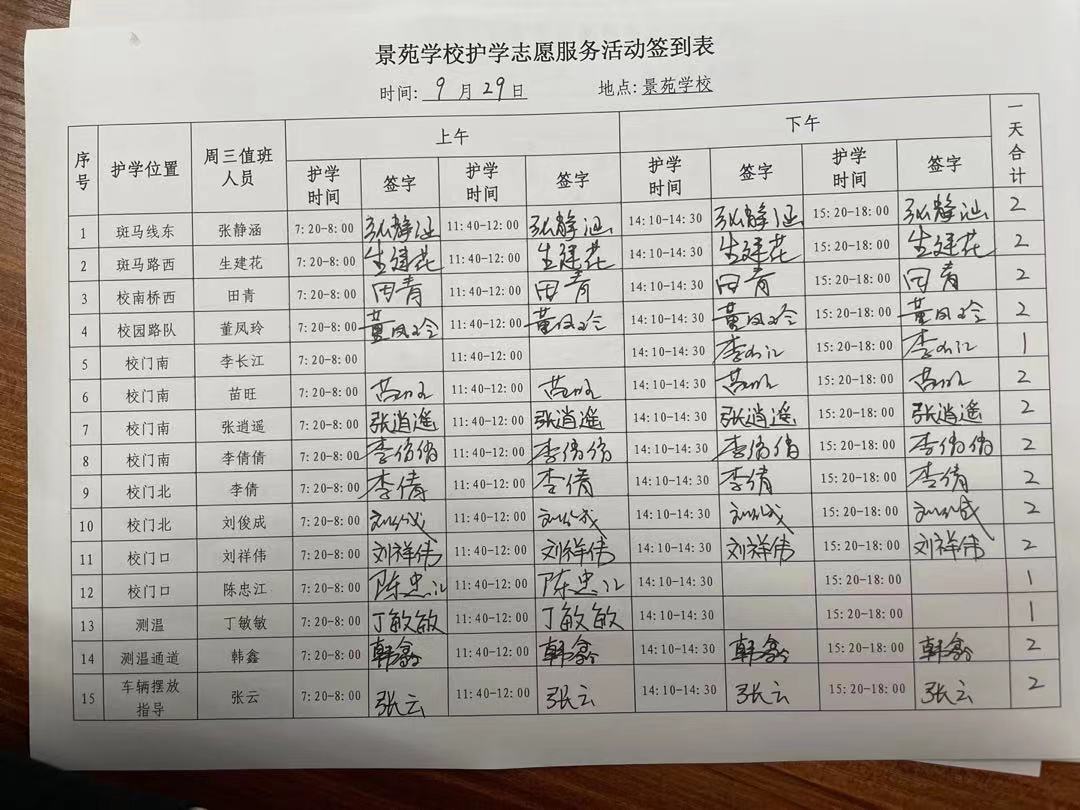 景苑学校护学志愿服务活动签到表
时间: 9 月 29 日 地点: 景苑学校
序号 护学位置 周三值班人员 上午 下午 一天合计
护学时间 签字 护学时间 签字 护学时间 签字 护学时间 签字
1 斑马线东 张静涵 7:20-8:00 张静涵 11:40-12:00 张静涵 14:10-14:30 张静涵 15:20-18:00 张静涵 2
2 斑马路西 生建花 7:20-8:00 生建花 11:40-12:00 生建花 14:10-14:30 生建花 15:20-18:00 生建花 2
3 校南桥西 田青 7:20-8:00 田青 11:40-12:00 田青 14:10-14:30 田青 15:20-18:00 田青 2
4 校园路队 董凤玲 7:20-8:00 董凤玲 11:40-12:00 董凤玲 14:10-14:30 董凤玲 15:20-18:00 董凤玲 2
5 校门南 李长江 7:20-8:00 11:40-12:00 14:10-14:30 李长江 15:20-18:00 李长江 1
6 校门南 苗旺 7:20-8:00 苗旺 11:40-12:00 苗旺 14:10-14:30 苗旺 15:20-18:00 苗旺 2
7 校门南 张逍遥 7:20-8:00 张逍遥 11:40-12:00 张逍遥 14:10-14:30 张逍遥 15:20-18:00 张逍遥 2
8 校门南 李倩倩 7:20-8:00 李倩倩 11:40-12:00 李倩倩 14:10-14:30 李倩倩 15:20-18:00 李倩倩 2
9 校门北 李倩 7:20-8:00 李倩 11:40-12:00 李倩 14:10-14:30 李倩 15:20-18:00 李倩 2
10 校门北 刘俊成 7:20-8:00 刘俊成 11:40-12:00 刘俊成 14:10-14:30 刘俊成 15:20-18:00 刘俊成 2
11 校门口 刘祥伟 7:20-8:00 刘祥伟 11:40-12:00 刘祥伟 14:10-14:30 刘祥伟 15:20-18:00 刘祥伟 2
12 校门口 陈忠江 7:20-8:00 陈忠江 11:40-12:00 陈忠江 14:10-14:30 15:20-18:00 1
13 测温 丁敏敏 7:20-8:00 丁敏敏 11:40-12:00 丁敏敏 14:10-14:30 15:20-18:00 1
14 测温通道 韩鑫 7:20-8:00 韩鑫 11:40-12:00 韩鑫 14:10-14:30 韩鑫 15:20-18:00 韩鑫 2
15 车辆摆放指导 张云 7:20-8:00 张云 11:40-12:00 张云 14:10-14:30 张云 15:20-18:00 张云 2